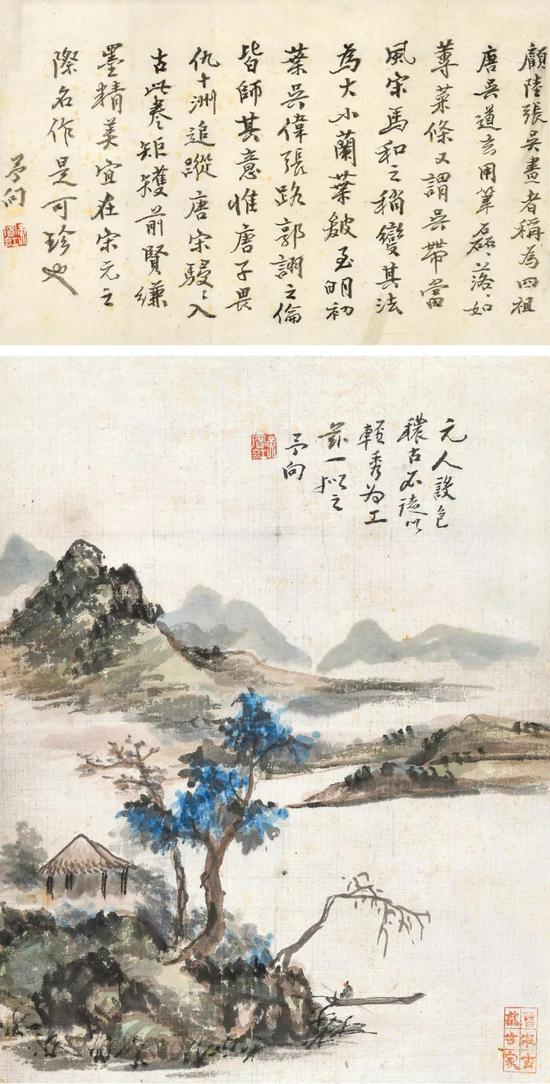 顧陸張吳畫者稱為四祖
唐吳道玄用筆磊落如
蓴菜條又謂吳帶當
風宋馬和之稍變其法
為大小蘭葉皴至明初
葉吳偉張路郭詡之倫
皆師其意惟唐子畏
仇十洲追蹤唐宋駸駸入
古此卷矩矱前賢縑
墨精美宜在宋元之
際名作是可珍也
予向
元人設色
穠古不徒以
輕秀為工
茲一擬之
予向